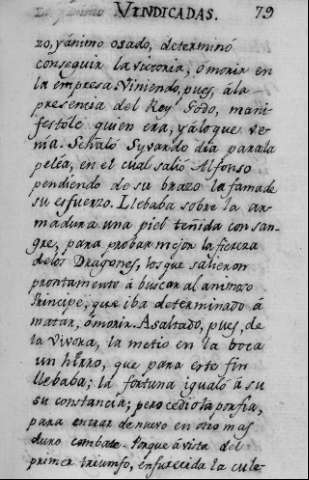 VINDICADAS. 79
zo, yánimo osado, determinó
conseguir la victoria, ómorir en
la empresa. Viniendo, pues, ála
presencia del Rey Godo, mani-
festóle quien era, yáloque ve-
nia. Señaló Syvardo dia parala
peléa, en el cúal salió Alfonso
pendiendo de su brazo la famade
su esfuerzo. Llebaba sobre la ar-
madura una piel teñida con san-
gre, para probar mejor la fiereza
delos Dragones, los que salieron
prontamento á buscar al animoso
Principe, que iba determinado á
matar, ómorir. Asaltado, pues, de
la Vivora, la metio en la boca
un hierro, que para este fin
llebaba; la fortuna igualó á su
su constancia; pero cedio la porfia,
para entrar de nuevo en otro mas
duro combate. Porque ávista del
primer triumfo, enfurecida la cule-